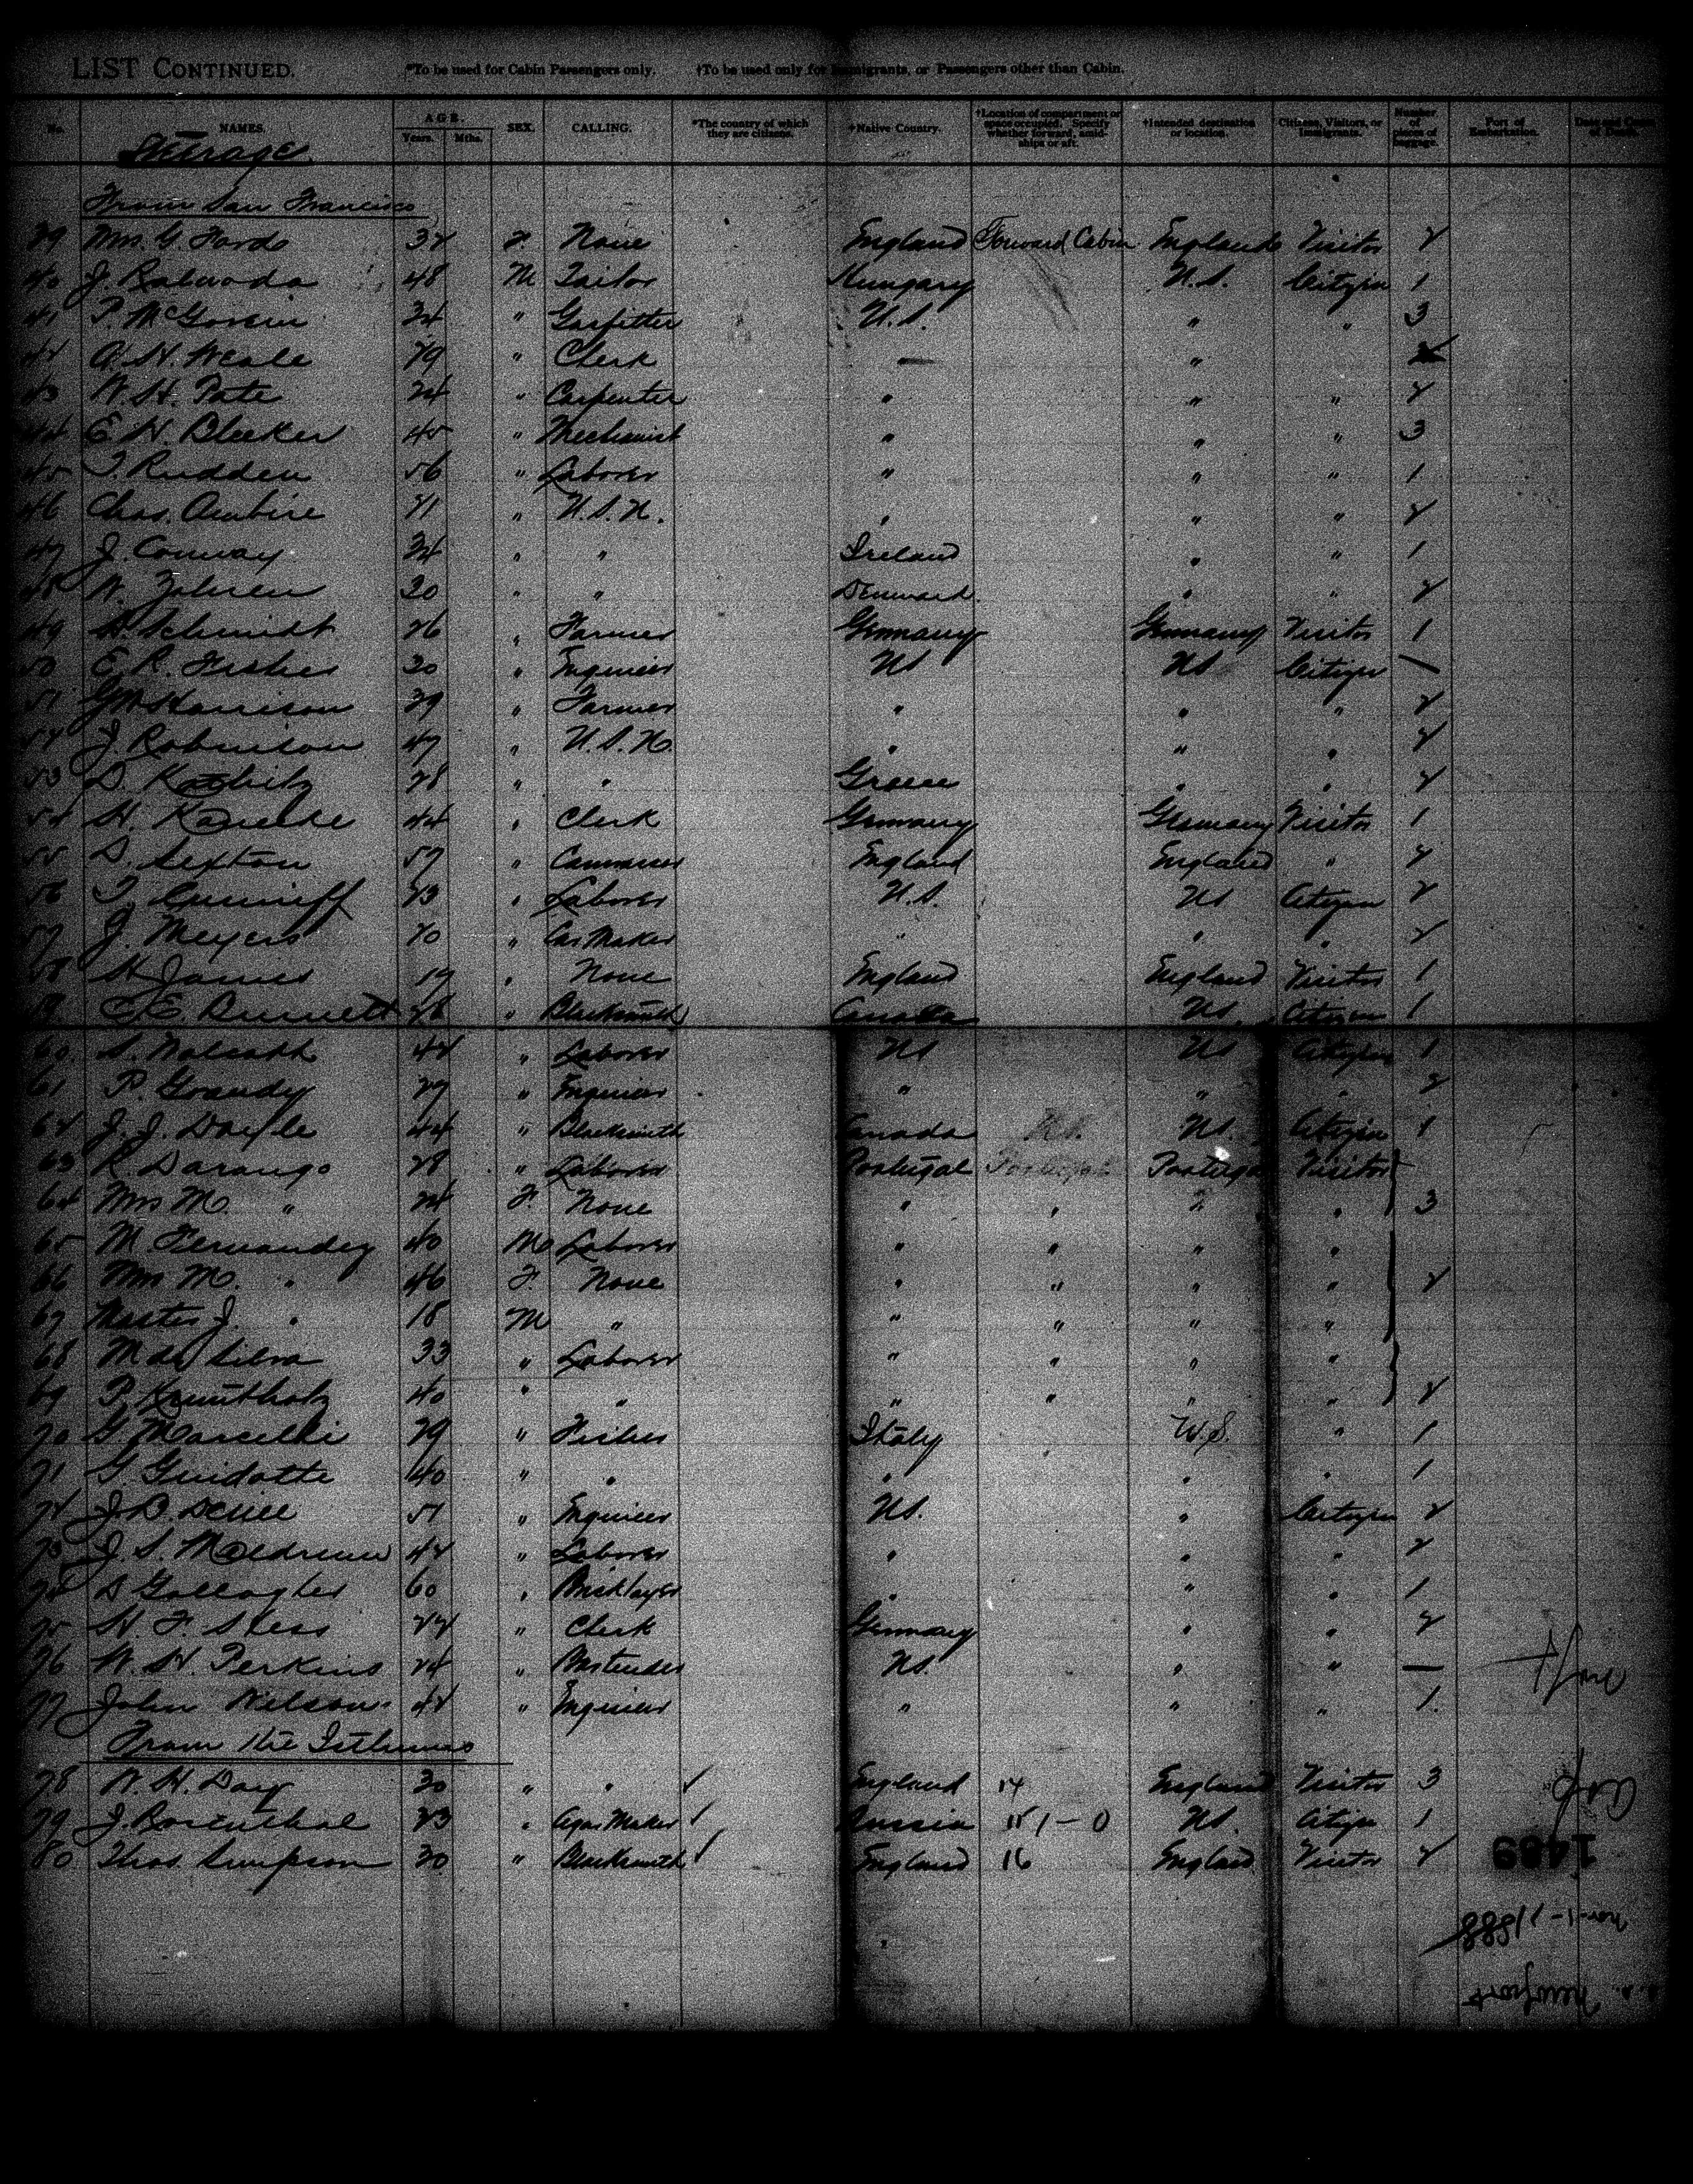 LIST CONTINUED. *To be used for Cabin Passengers only. †To be used only for Immigrants, or Passengers other than Cabin.
No. NAMES. AGE. Years. Mths. SEX. CALLING. *The country of which they are citizens. †Native Country. †Location of compartment or space occupied. Specify whether forward, amidships or aft. †Intended destination or location. Citizens, Visitors, or Immigrants. Number of pieces of baggage. Port of Embarkation. Date and Cause of Death.
Steerage
From San Francisco
39 Mrs. G. Fords 32 F. None England Forward Cabin England Visitor 2
40 J. 48 M Tailor Hungary U.S. Citizen 1
41 P. McGovern 34 " Gasfitter U.S. " " 3
42 A. H. Weale 29 " Clerk "
43 W. H. Pate 24 " Carpenter " " " 2
44 E. H. Bleeker 45 " Mechanist " " " 3
45 T. Rudden 56 " Laborer " " " 1
46 Chas. 21 " U.S.N. " " " 2
47 J. Conway 34 " " Ireland " " 1
48 W. 30 " " Denmark " " 2
49 Schmidt 26 " Farmer Germany Germany Visitor 1
50 E. R. Fisher 30 " Engineer US US Citizen —
51 Harrison 39 " Farmer " " " 2
52 J. Robinson 47 " U.S.N. " " " 2
53 28 " " Greece " " 2
54 H. 44 " Clerk Germany Germany Visitor 1
55 D. Sexton 57 " Canvasser England England " 2
56 T. Cunniff 23 " Laborer U.S. US Citizen 2
57 J. Meyers 20 " " " " 2
58 H James 19 " None England England Visitor 1
59 C E Burnett 26 " Blacksmith Canada US. Citizen 1
60 44 " Laborer US US Citizen 1
61 P. Grandy 27 " Engineer " " " 2
62 J. J. Doyle 44 " Blacksmith Canada U.S. US. Citizen 1
63 R. Darango 28 " Laborer Portugal Portugal Portugal Visitor
64 Mrs M. " 24 F. None " " " " 3
65 M. Fernandez 40 M Laborer " " " "
66 Mrs M. " 46 F. None " " " " 2
67 Master J. " 18 M " " " " "
68 M da Silva 33 " Laborer " " " "
69 P. Krumtholz 40 " " " " " " 2
70 G Marcelli 29 " Fisher Italy U.S. " 1
71 G Guidotte 40 " " " " " 1
72 J. B. 51 " Engineer US. " Citizen 2
73 J. S. 42 " Laborer " " " 2
74 D Gallagher 60 " Bricklayer " " " 1
75 H. F. 22 " Clerk Germany " " 2
76 W. H. Perkins 24 " Bartender US. " " —
77 John Nelson 42 " Engineer " " " 1
From the Isthmus
78 W. H. Day 30 " " ✓ England 14 England Visitor 3
79 J. Rosenthal 23 " Cigar Maker ✓ Russia 15 1 – 0 US. Citizen 1
80 Thos. Simpson 30 " Blacksmith ✓ England 16 England Visitor 2
1489
1888
Newport